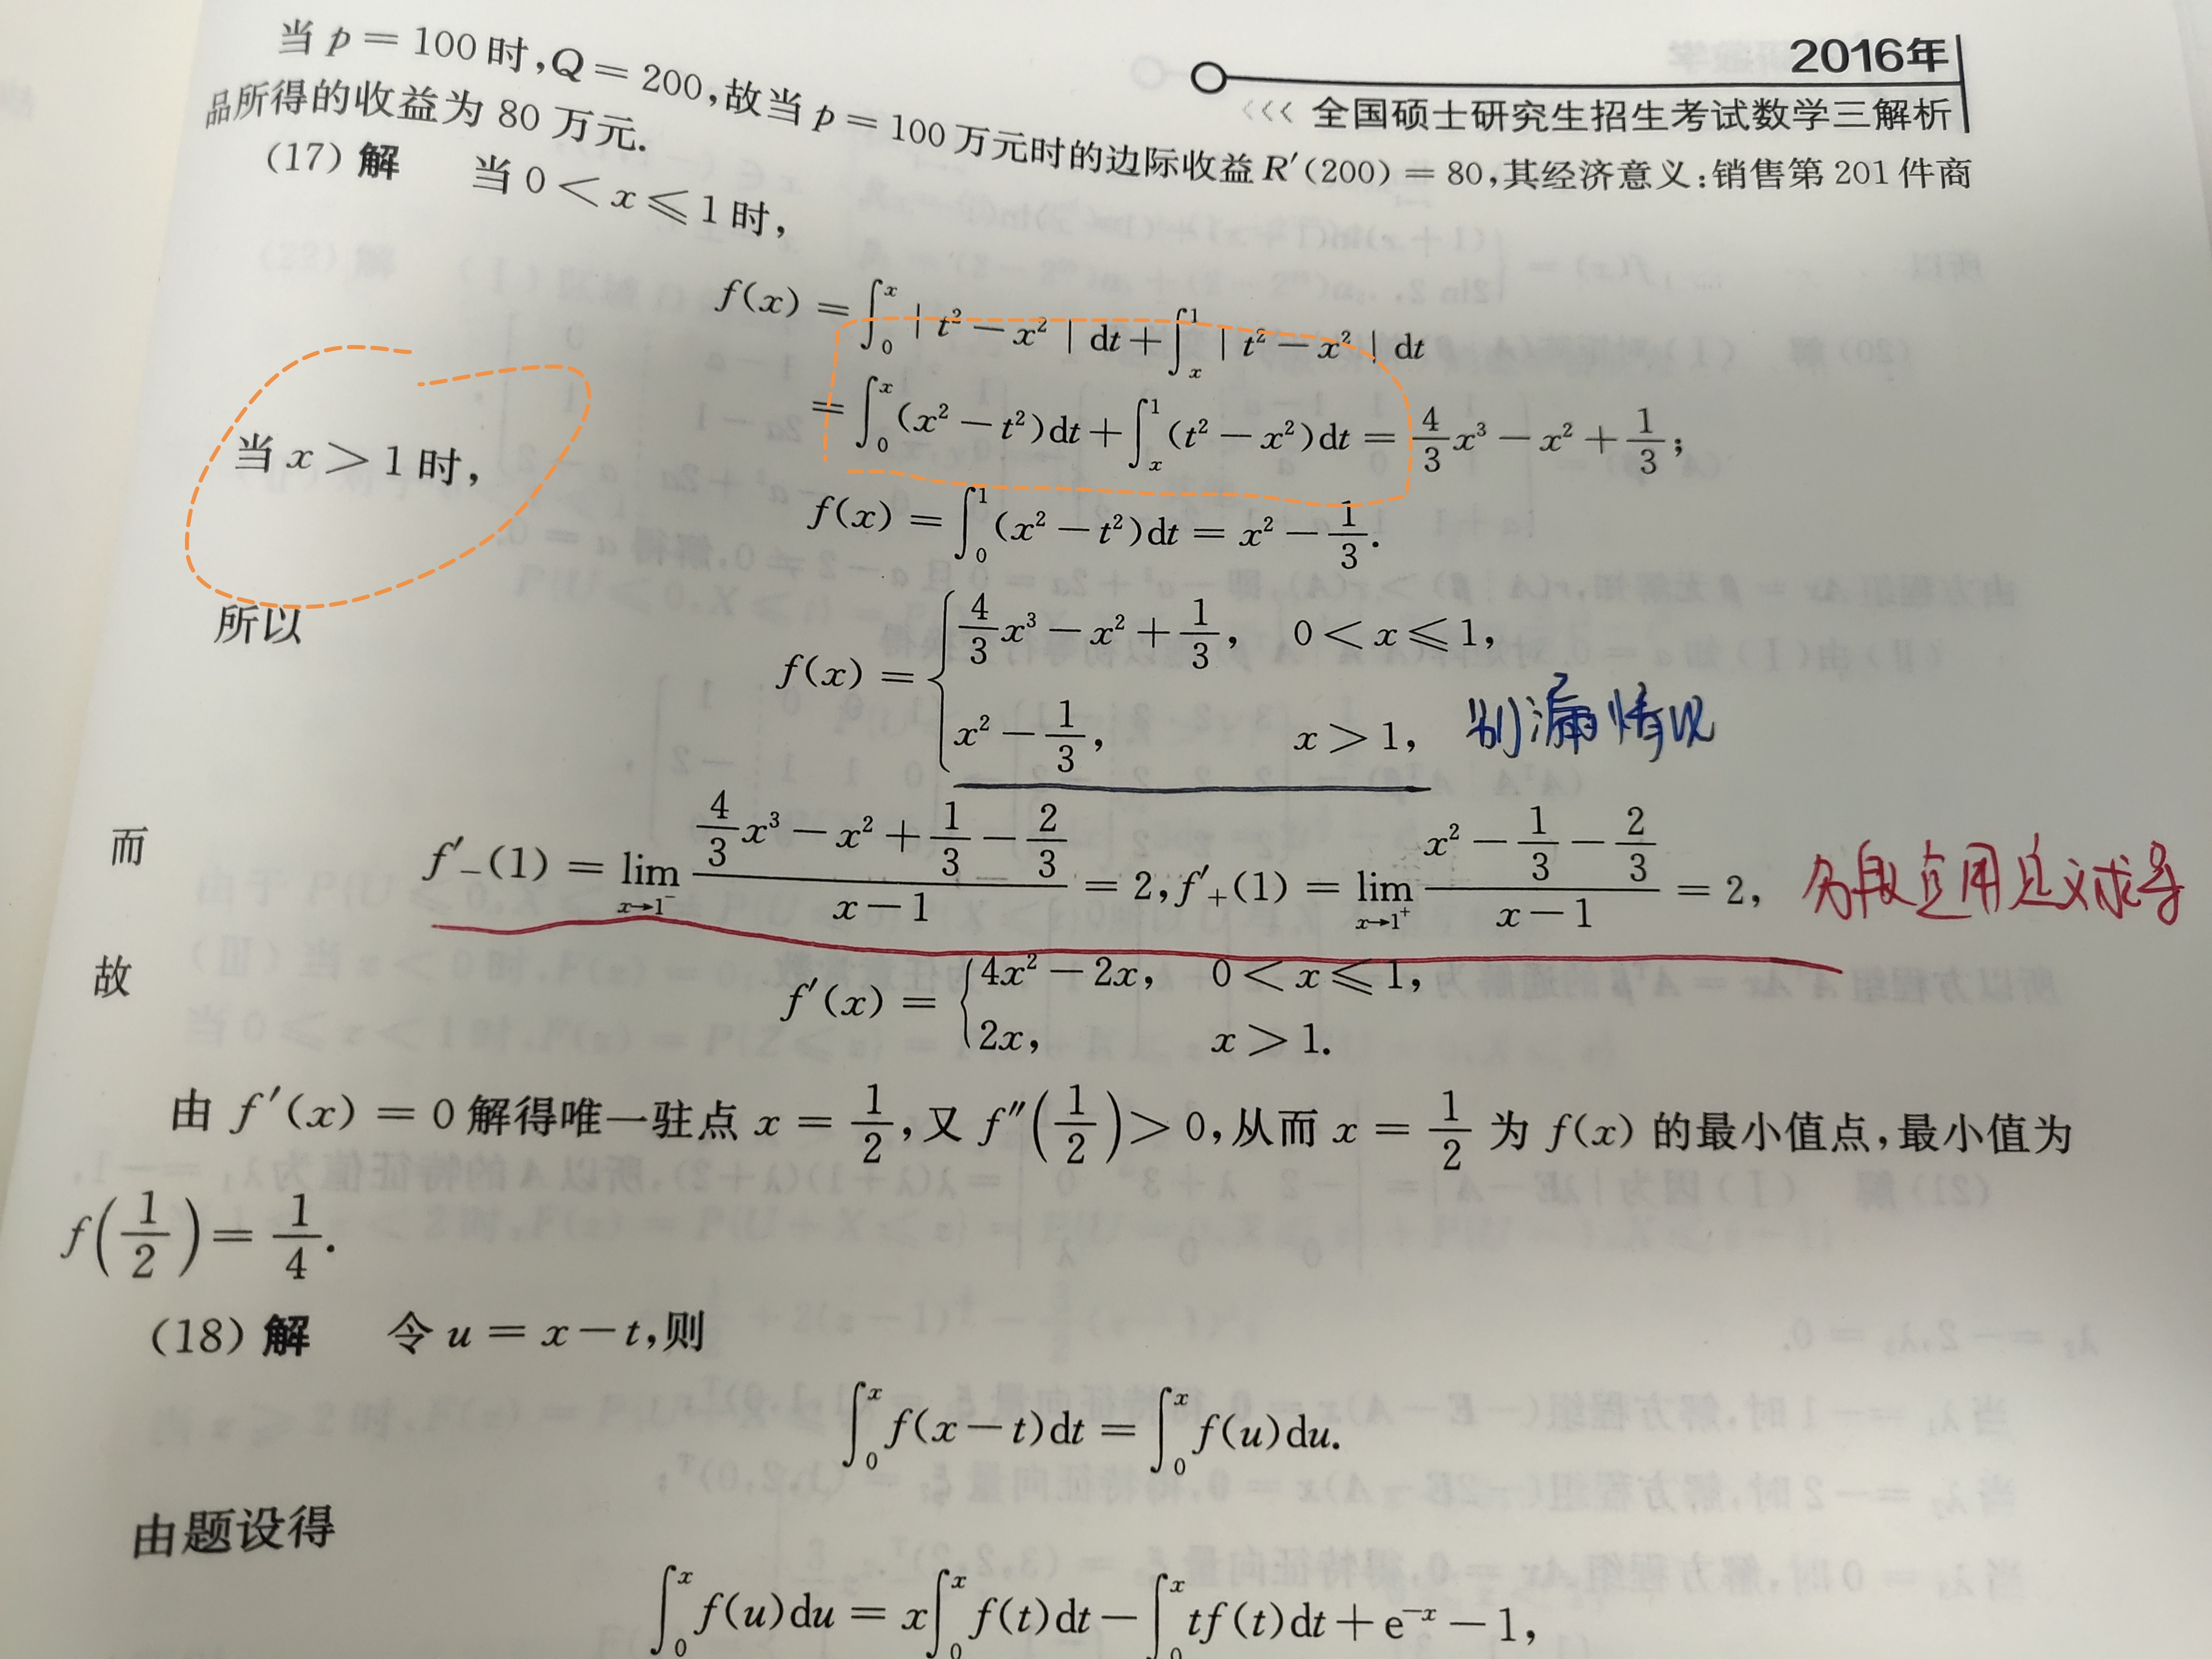 2016年
<<< 全国硕士研究生招生考试数学三解析
当 p = 100 时, Q = 200, 故当 p = 100 万元时的边际收益 R′(200) = 80, 其经济意义: 销售第 201 件商
品所得的收益为 80 万元.
(17) 解 当 0 < x ⩽ 1 时,
f(x) = ∫₀ˣ | t² − x² | dt + ∫ₓ¹ | t² − x² | dt
= ∫₀ˣ (x² − t²)dt + ∫ₓ¹ (t² − x²)dt = 4/3 x³ − x² + 1/3;
当 x > 1 时,
f(x) = ∫₀¹ (x² − t²)dt = x² − 1/3.
所以
f(x) = { 4/3 x³ − x² + 1/3, 0 < x ⩽ 1,
x² − 1/3, x > 1, 别漏情况
而 f′₋(1) = lim_{x→1⁻} (4/3 x³ − x² + 1/3 − 2/3)/(x − 1) = 2, f′₊(1) = lim_{x→1⁺} (x² − 1/3 − 2/3)/(x − 1) = 2, 分段点用定义求导
故 f′(x) = { 4x² − 2x, 0 < x ⩽ 1,
2x, x > 1.
由 f′(x) = 0 解得唯一驻点 x = 1/2, 又 f″(1/2) > 0, 从而 x = 1/2 为 f(x) 的最小值点, 最小值为
f(1/2) = 1/4.
(18) 解 令 u = x − t, 则
∫₀ˣ f(x − t)dt = ∫₀ˣ f(u)du.
由题设得
∫₀ˣ f(u)du = x∫₀ˣ f(t)dt − ∫₀ˣ tf(t)dt + e⁻ˣ − 1,